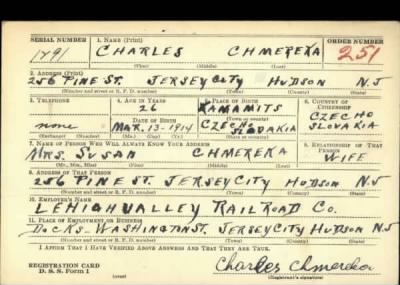 SERIAL NUMBER 1. NAME (Print) ORDER NUMBER
1791 CHARLES CHMEREKA 251
(First) (Middle) (Last)
2. ADDRESS (Print)
256 PINE ST. JERSEY CITY HUDSON N.J
(Number and street or R. F. D. number) (Town) (County) (State)
3. TELEPHONE 4. AGE IN YEARS 5. PLACE OF BIRTH 6. COUNTRY OF CITIZENSHIP
26 KAMAMITS
DATE OF BIRTH (Town or county) CZECHO
none MAR. 13-1914 CZECHO SLOVAKIA SLOVAKIA
(Exchange) (Number) (Mo.) (Day) (Yr.) (State or country)
7. NAME OF PERSON WHO WILL ALWAYS KNOW YOUR ADDRESS 8. RELATIONSHIP OF THAT PERSON
MRS. SUSAN CHMEREKA WIFE
(Mr., Mrs., Miss) (First) (Middle) (Last)
9. ADDRESS OF THAT PERSON
256 PINE ST. JERSEY CITY HUDSON N.J
(Number and street or R. F. D. number) (Town) (County) (State)
10. EMPLOYER'S NAME
LEHIGH VALLEY RAILROAD CO.
11. PLACE OF EMPLOYMENT OR BUSINESS
DOCKS-WASHINGTON ST. JERSEY CITY HUDSON N.J
(Number and street or R. F. D. number) (Town) (County) (State)
I AFFIRM THAT I HAVE VERIFIED ABOVE ANSWERS AND THAT THEY ARE TRUE.
REGISTRATION CARD
D. S. S. Form 1 (over) Charles Chmereka
(Registrant's signature)